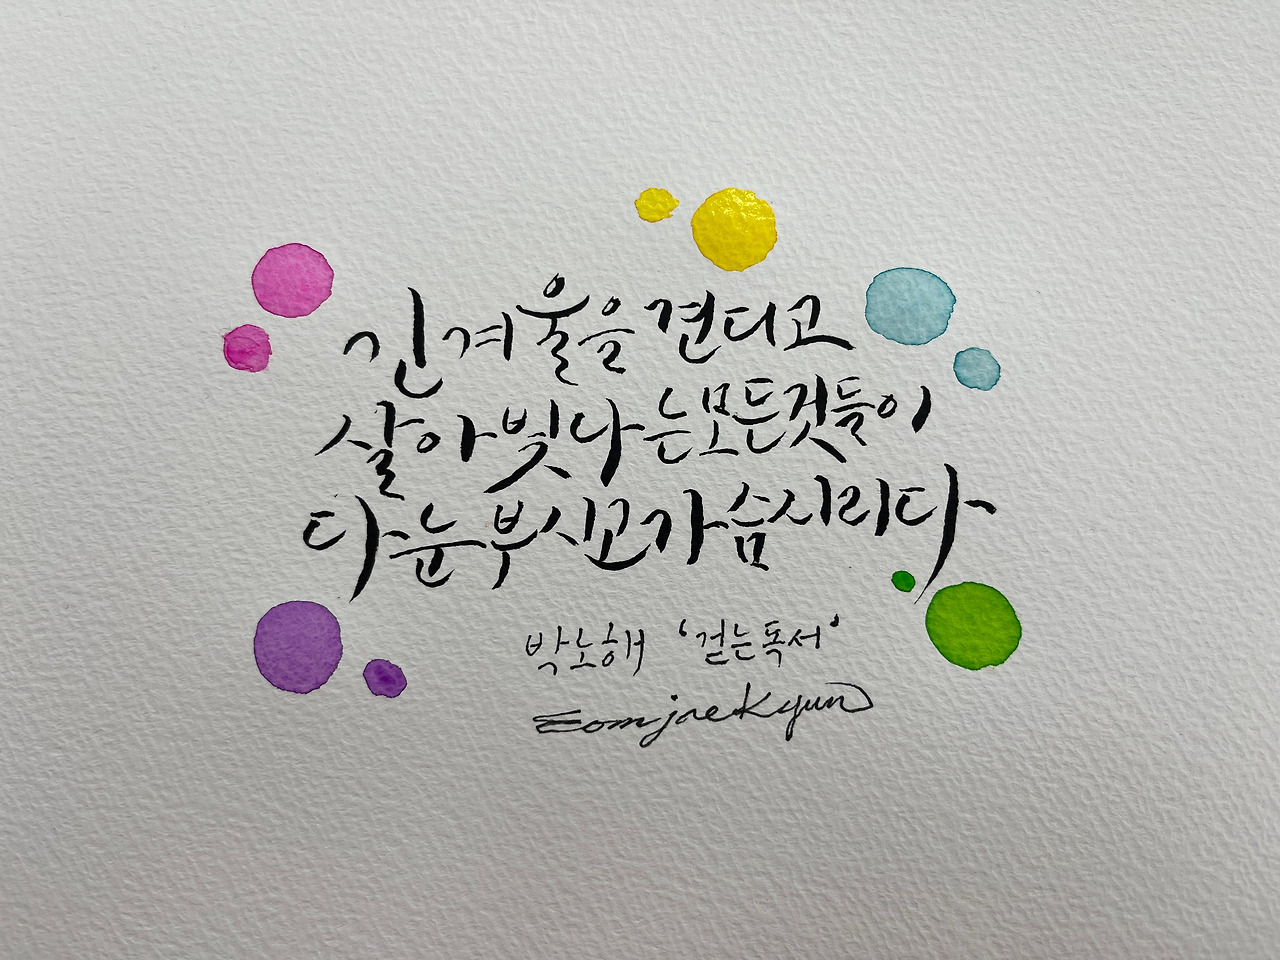 긴 겨울을 견디고
살아 빛나는 모든 것들이
다 눈부시고 가슴 시리다
박노해 '걷는 독서'
Eom jae Kyun